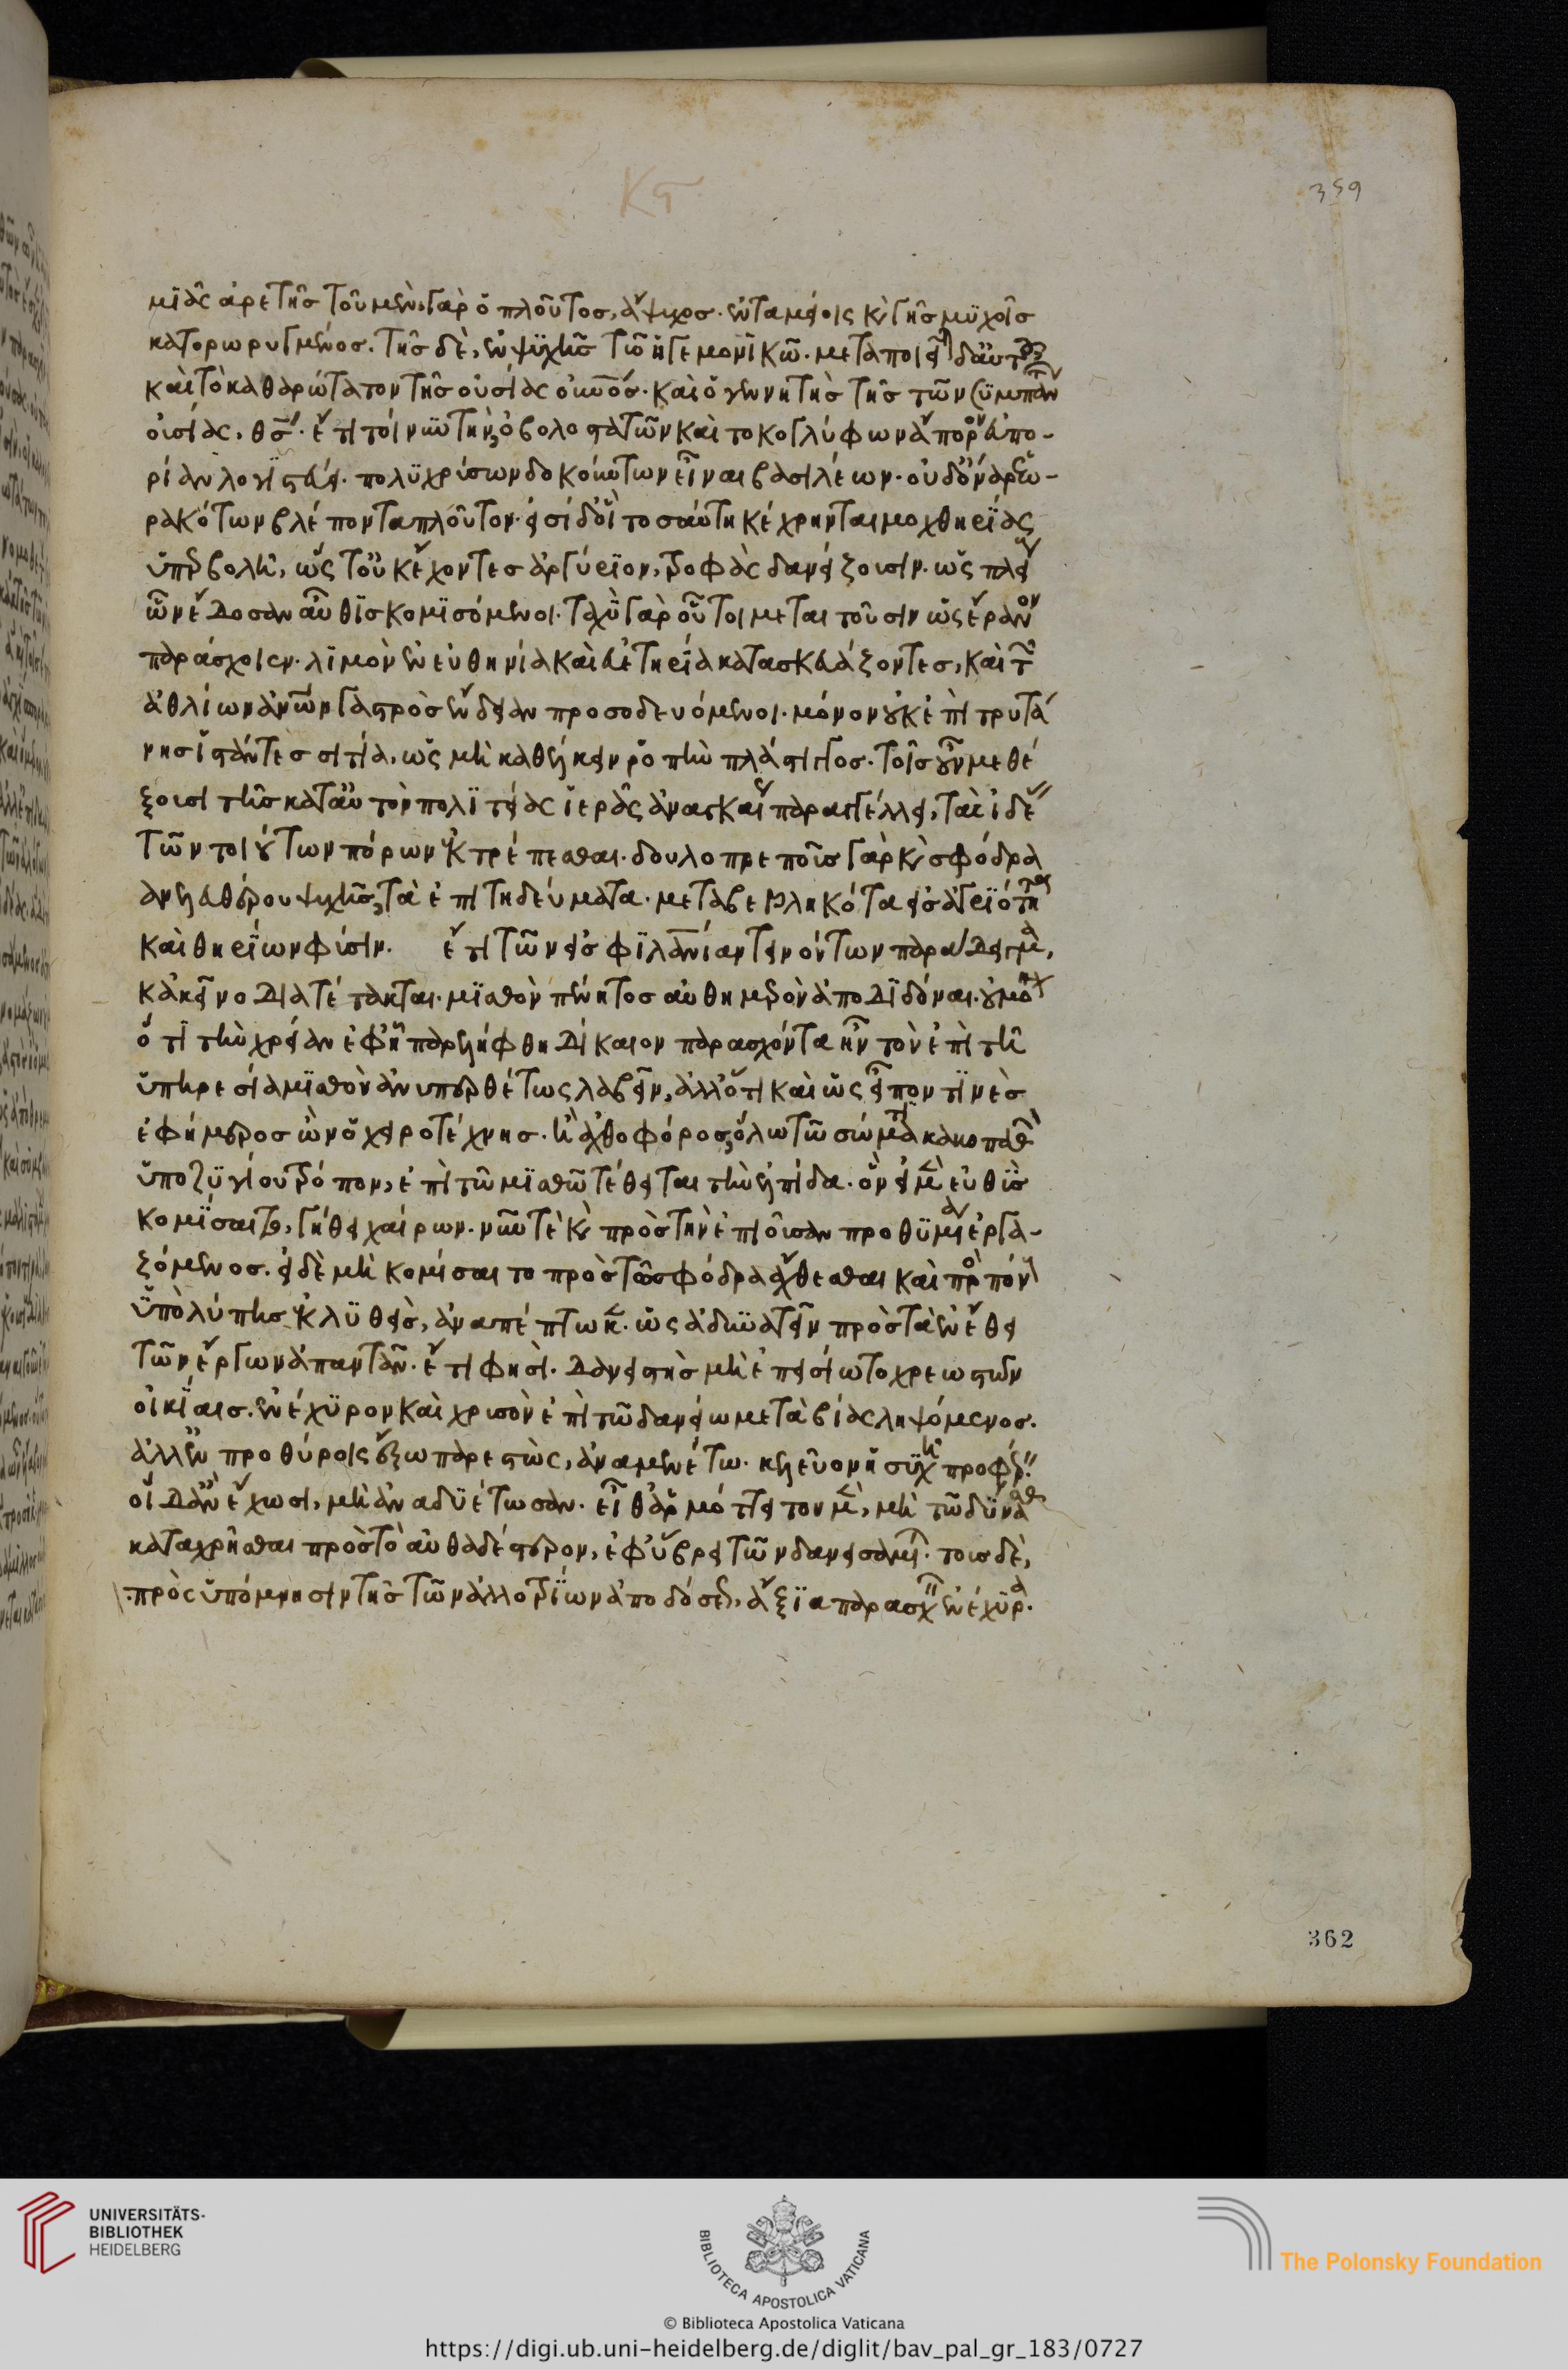 μιᾶς ἀρετῆς τοῦ μὲν γὰρ ὁ πλοῦτος, ἄψυχος· ἐν ταμείοις κ(αὶ) γῆς μυχοῖς
κατορωρυγμένος. τῆς δὲ, ἐν ψυχῆς τῷ ἡγεμονικῷ· μεταποιεῖ(ται) δ' αὐτ
καὶ τὸ καθαρώτατον τῆς οὐσίας οὐ(ρα)νός· καὶ ὁ γεννητὴς τῆς τῶν συμπάντων
οὐσίας, θς. ἔτι τοίνυν τὴν ὀβολοστατῶν καὶ τοκογλύφων ἄπορον εὐπο-
ρίαν πολυχρύσων δοκούντων εἶναι βασιλέων. οὐδ' ὄναρ ἑω-
ρακότων βλέποντα πλοῦτον. εἰσὶ δ' οἳ τοσαύτῃ κέχρηνται μοχθηρίας
ὑπερβολῇ, ὡς τοὐκ ἔχοντες ἀργύριον, τροφὰς δανείζουσιν. ὡς πλεί
ὧν ἔδοσαν αὖθις κομισόμενοι. ταχὺ γὰρ οὗτοι μεταιτοῦσιν ὡς ἔρανον
παράσχοιεν. λιμὸν ἐν εὐθηνία καὶ εὐετηρία κατασκευάζοντες, καὶ τ
ἀθλίων ἀν(θρώπ)ων γαστρὸς ἔνδειαν προσοδευόμενοι. μόνον οὐκ ἐπὶ τρυτά
νης ἱστάντες σιτία, ὡς μὴ καθέλκειν ῥοπὴν πλάστιγγος. τοῖς οὖν μεθέ
ξουσι τῆς κατ' αὐτὸν πολιτείας ἱερᾶς ἀναγκαῖ παραγγέλλει, τὰς ἰδέ
τῶν τοιούτων πόρων ἐκτρέπεσθαι. δουλοπρεποῦς γὰρ κ(αὶ) σφόδρα
ἀνελευθέρου ψυχῆς, τὰ ἐπιτηδεύματα. μεταβεβληκότα εἰς ἀγριότητα
καὶ θηρίων φύσιν. ἔτι τῶν εἰς φιλαν(θρωπ)ίαν τεινόντων παραδείγμα,
κἀκεῖνο διατέτακται. μισθὸν πένητος αὐθημερὸν ἀποδιδόναι. οὐ μόν
ὅτι τὴν χρείαν ἐφ' ἣ παρελήφθη δίκαιον παρασχόντα ἦν τὸν ἐπὶ τῇ
ὑπηρεσία μισθὸν ἀνυπερθέτως λαβεῖν, ἀλλ' ὅτι καὶ ὡς εἶπον τινὲς
ἐφήμερος ὢν ὁ χειροτέχνης. ἢ ἀχθοφόρος, ὅλω τῷ σώματι κακοπαθ
ὑποζυγίου τρόπον, ἐπὶ τῷ μισθῷ τέθειται τὴν ἐλπίδα. ὃν εἰ μὲν εὐθὺς
κομίσαιτο, γήθει χαίρων. νῦν τὲ κ(αὶ) πρὸς τὴν ἐπιοῦσαν προθυμίαν ἐργα-
ζόμενος. εἰ δὲ μὴ κομίσαιτο πρὸς τῶ σφόδρα ἄχθεσθαι καὶ προπόν
ὑπὸ λύπης ἐκλυθεὶς, ἀναπέπτωκεν. ὡς ἀδυνατεῖν πρὸς τὰ ἐν ἔθει
τῶν ἔργων ἀπαντᾶν. ἔτι φησὶ. δανειστὴς μὴ ἐπεισίτω χρεωστῶν
οἰκίαις. ἐνέχυρον καὶ χρυσὸν ἐπὶ τῷ δανείω μετὰ βίας ληψόμενος.
ἀλλ' ἐν προθύροις ἔξω παρεστὼς, ἀναμενέτω. κελεῦον ἡσυχῆ προφέρ
οἱ δ' ἂν ἔχωσι, μὴ ἀναδυέτωσαν. εἶθ' ἁρμόττει τον μὲν, μὴ τῷ δύνασθαι
καταχρῆσθαι πρὸς τὸ αὐθαδέστερον, ἐφ' ὕβρει τῶν δανεισαμέ. τοῖς δὲ,
πρὸς ὑπόμνησιν τῆς τῶν ἀλλοτρίων ἀποδόσεως, ἄξια παρασχεῖν ἐνέχυρα.
359
362
UNIVERSITÄTS-
BIBLIOTHEK
HEIDELBERG
BIBLIOTECA APOSTOLICA VATICANA
The Polonsky Foundation
© Biblioteca Apostolica Vaticana
https://digi.ub.uni-heidelberg.de/diglit/bav_pal_gr_183/0727